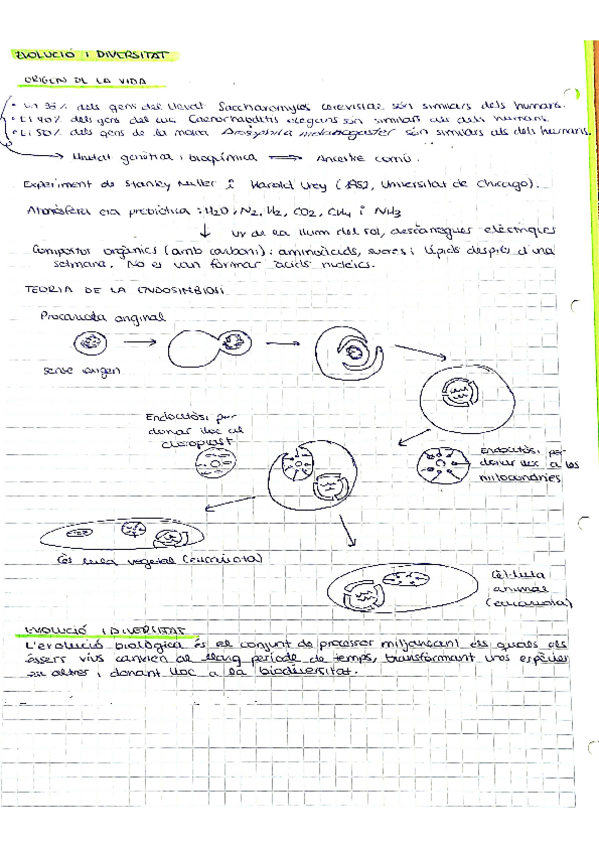 EVOLUCIÓ I DIVERSITAT
ORIGEN DE LA VIDA
• Un 35% dels gens del llevat Saccharomyces cerevisiae són similars dels humans.
• El 40% dels gens del cuc Caenorhabditis elegans són similars als dels humans.
• El 50% dels gens de la mosca Drosophila melanogaster són similars als dels humans.
→ Unitat genètica i bioquímica ⟹ Ancestre comú.
Experiment de Stanley Miller i Harold Urey (1952, Universitat de Chicago).
Atmòsfera era prebiòtica: H2O, N2, H2, CO2, CH4 i NH3
↓ UV de la llum del sol, descàrregues elèctriques
Compostos orgànics (amb carboni): aminoàcids, sucres i lípids després d'una
setmana. No es van formar àcids nucleics.
TEORIA DE LA ENDOSIMBIOSI
Procariota original
sense origen
Endocitosi per
donar lloc al
cloroplast
Endocitosi per
donar lloc a les
mitocondries
Cèl·lula vegetal (eucariota)
Cèl·lula
animal
(eucariota)
EVOLUCIÓ I DIVERSITAT
L'evolució biològica és el conjunt de processos mitjançant els quals els
éssers vius canvien al llarg període de temps, transformant unes espècies
en altres i donant lloc a la biodiversitat.